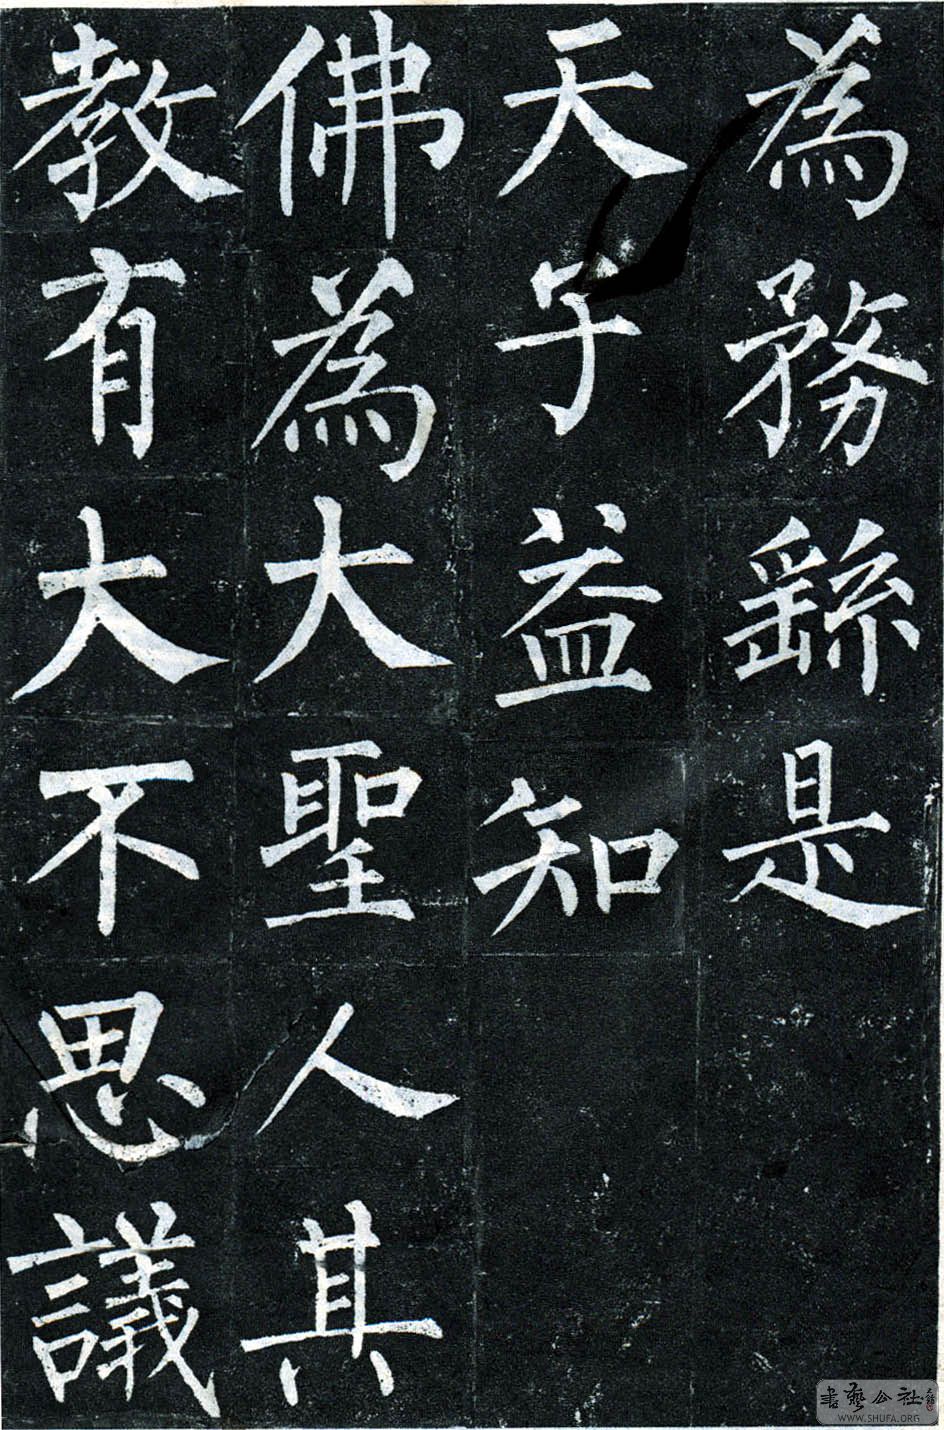 為務繇是
天子益知
佛為大聖人其
教有大不思議
書藝公社
WWW.SHUFA.ORG